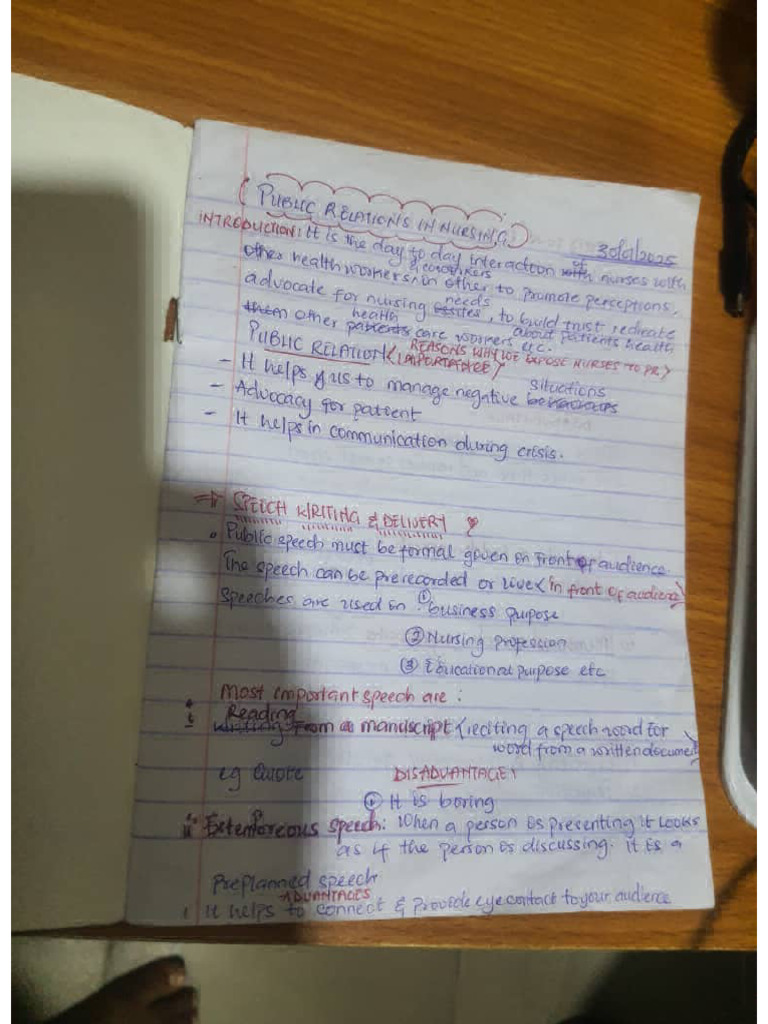 PUBLIC RELATIONS IN NURSING
INTRODUCTION: It is the day to day interaction of nurses with
other healthworkers, & coworkers in other to promote perceptions,
advocate for nursing needs, to build trust redicate
them other patients health care workers etc. about patients health
PUBLIC RELATION (REASONS WHY WE EXPOSE NURSES TO PR)
(IMPORTANCE)
- It helps us to manage negative situations
- Advocacy for patient
- It helps in communication during crisis.
SPEECH WRITING & DELIVERY
Public speech must be formal given on front of audience
The speech can be prerecorded or live (in front of audience)
Speeches are used in: ① business purpose
② Nursing profession
③ Educational purpose etc
Most important speech are:
i Reading from a manuscript (reciting a speech word for
word from a written document)
eg Quote DISADVANTAGE:
① It is boring
ii Extemporeous speech: When a person is presenting it looks
as if the person is discussing. it is a
Preplanned speech
ADVANTAGES
1 It helps to connect & provide eye contact to your audience